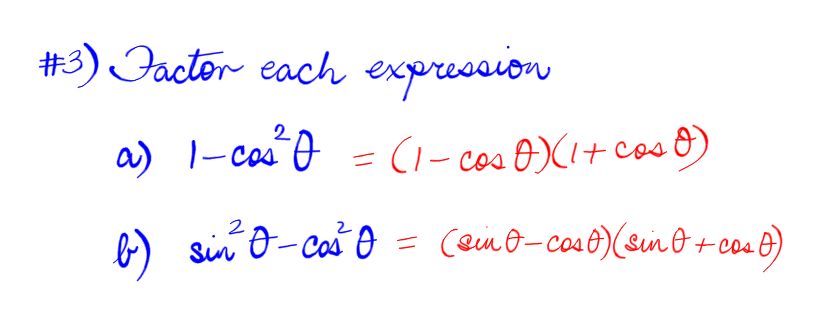 #3) Factor each expression
a) 1-cos²θ = (1-cosθ)(1+cosθ)
b) sin²θ-cos²θ = (sinθ-cosθ)(sinθ+cosθ)